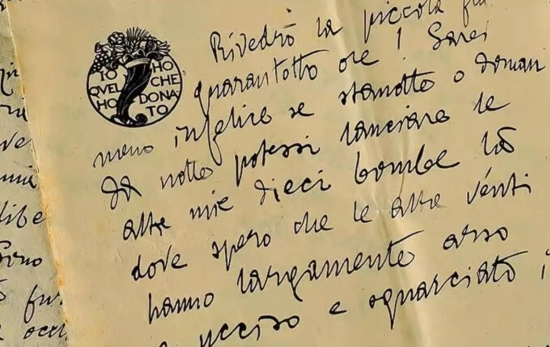 IO HO
QVEL CHE
HO DONA
TO
Rivedrò la piccola
quarantotto ore! Sarei
meno infelice se stanotte o doman
da notte potessi lanciare le
altre mie dieci bombe là
dove spero che le altre venti
hanno largamente arso
ucciso e squarciato